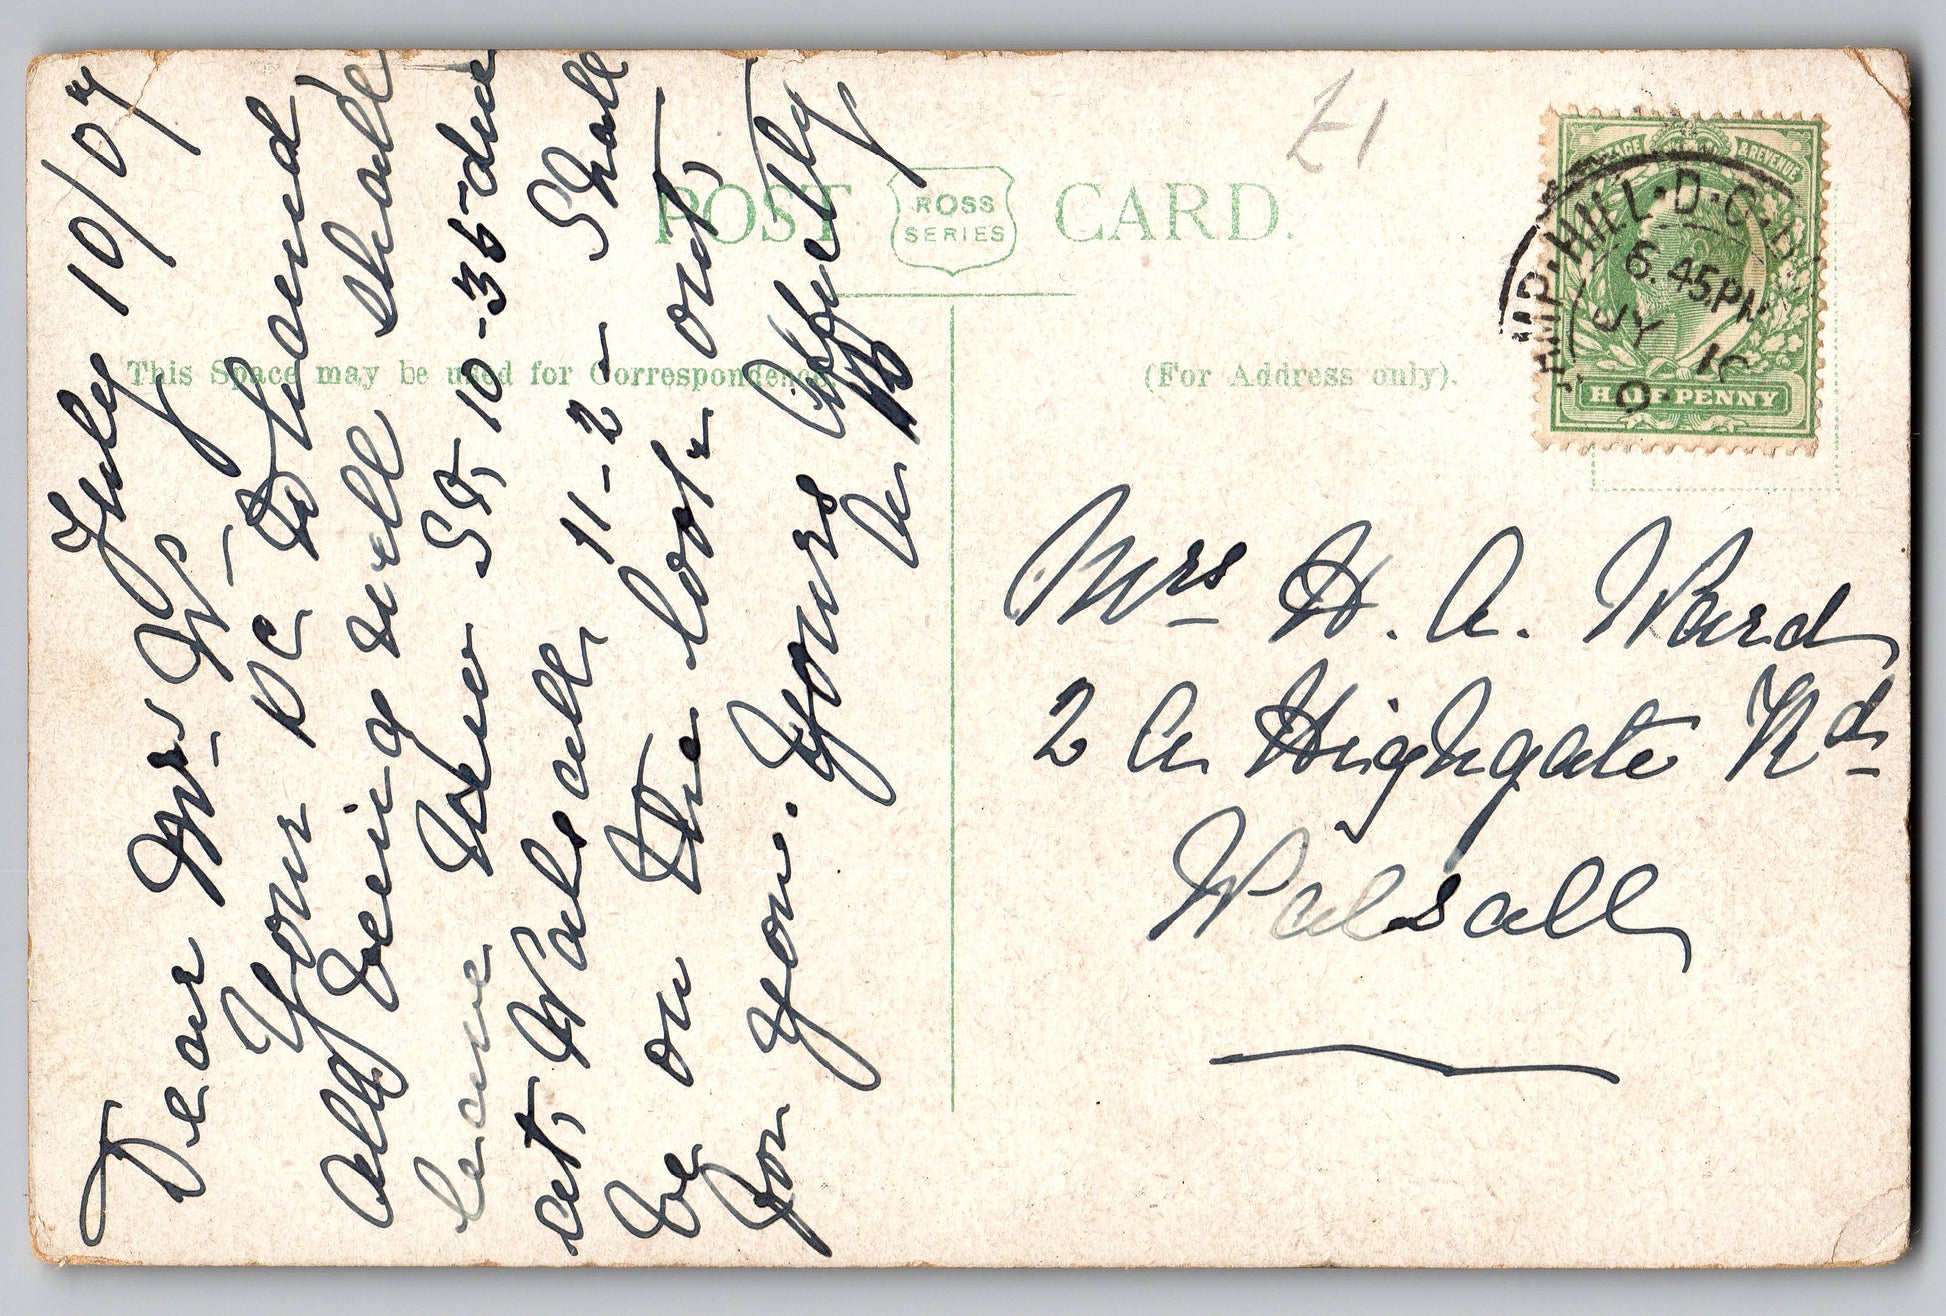 POST CARD.
ROSS
SERIES
This Space may be used for Correspondence.
(For Address only).
£1
POSTAGE & REVENUE
HALF PENNY
CAMP·HILL·D·O·B
6.45PM
JY 10
July 10/07
Dear Mrs W,
Your PC to hand
all being well shall
leave New St, 10-35 due
at, Walsall, 11-2- Shall
be on the look-out,
for you. Yours Affectly
A
Mrs H. A. Ward
2 A Highgate Rd
Walsall